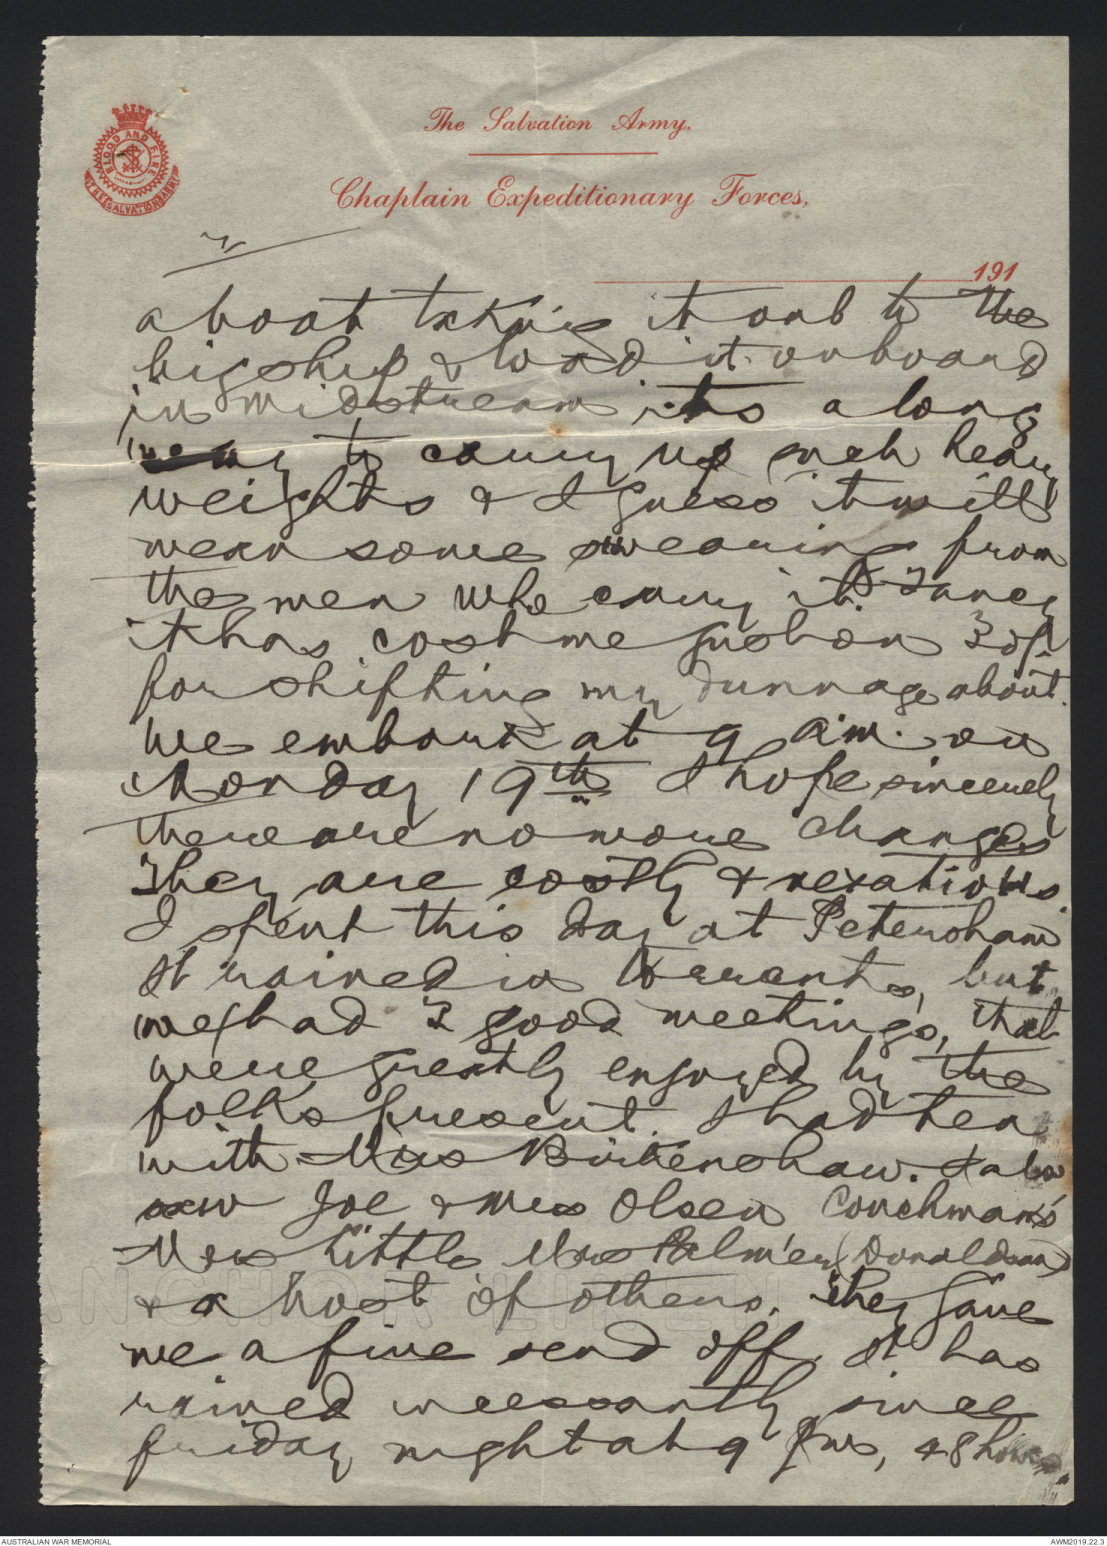 BLOOD AND FIRE
THE SALVATION ARMY
The Salvation Army.
Chaplain Expeditionary Forces,
191
about taking it out to the
big ship & load it onboard
in midstream its a long
way to carry up such heavy
weights & I guess it will
mean some swearing from
the men who carry it. Fancy
it has cost me just on 30/-
for shifting my dunnage about.
We embark at 9 am. on
Monday 19th I hope sincerely
there are no more changes
They are costly & vexatious.
I spent this day at Petersham
It rained in torrents, but
we had 3 good meetings, that
were greatly enjoyed by the
folks present. I had tea
with Mrs Birkenshaw. I also
saw Joe & Mrs Olsen Couchman's
Mrs Little Mrs Palmer (Donaldson)
& a host of others. They gave
me a fine send off. It has
rained incessantly since
friday night at 9 pm, 48 hours.
ANCHOR LINEN
AUSTRALIAN WAR MEMORIAL
AWM2019.22.3